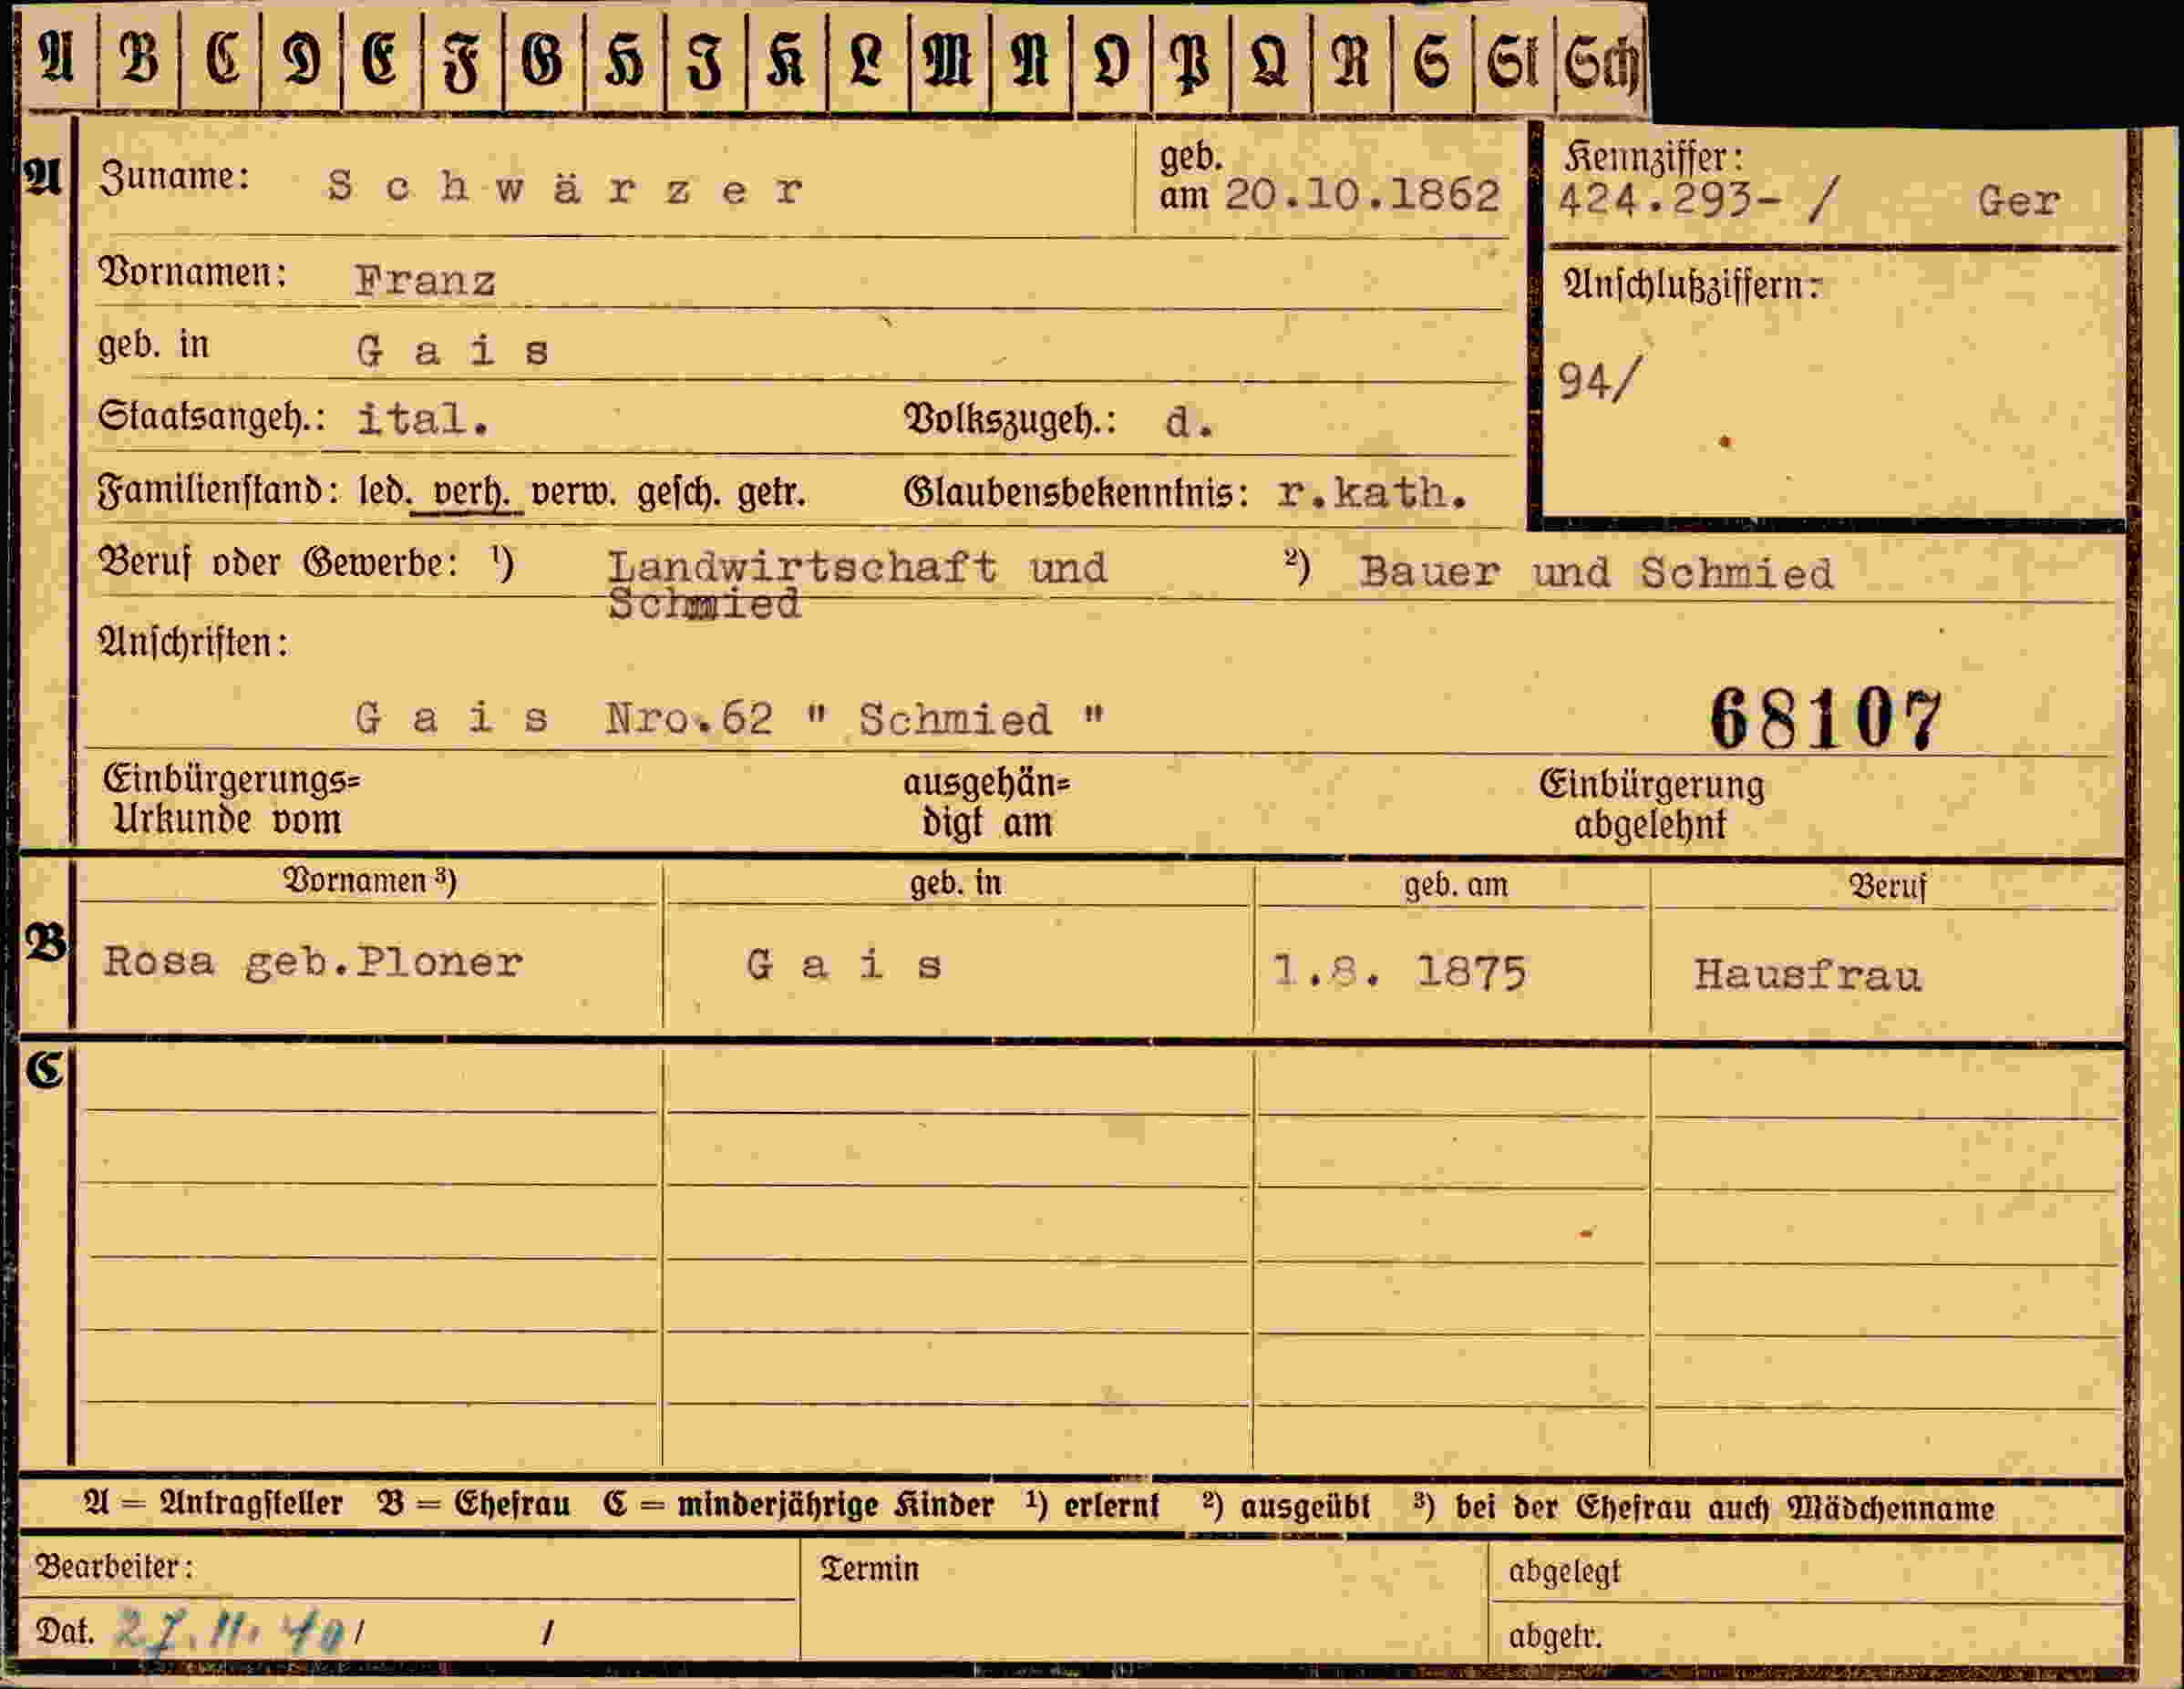 A B C D E F G H I K L M N O P Q R S St Sch
A Zuname: Schwärzer geb. am 20.10.1862 Kennziffer: 424.293- / Ger
Vornamen: Franz Anschlußziffern:
geb. in Gais 94/
Staatsangeh.: ital. Volkszugeh.: d.
Familienstand: led. verh. verw. gesch. getr. Glaubensbekenntnis: r.kath.
Beruf oder Gewerbe: ¹) Landwirtschaft und ²) Bauer und Schmied
Schmied
Anschriften:
Gais Nro.62 " Schmied " 68107
Einbürgerungs= ausgehän= Einbürgerung
Urkunde vom digt am abgelehnt
Vornamen ³) geb. in geb. am Beruf
B Rosa geb.Ploner Gais 1.8. 1875 Hausfrau
C
A = Antragsteller B = Ehefrau C = minderjährige Kinder ¹) erlernt ²) ausgeübt ³) bei der Ehefrau auch Mädchenname
Bearbeiter: Termin abgelegt
Dat. 27.11.40 / / abgetr.